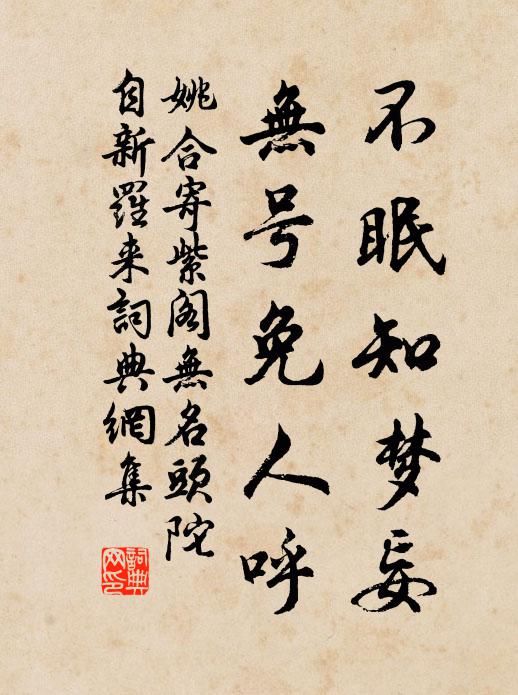 不眠知梦妄
無号免人呼
姚合寄紫阁無名頭陀
自新羅来詞典網集
詞典网印